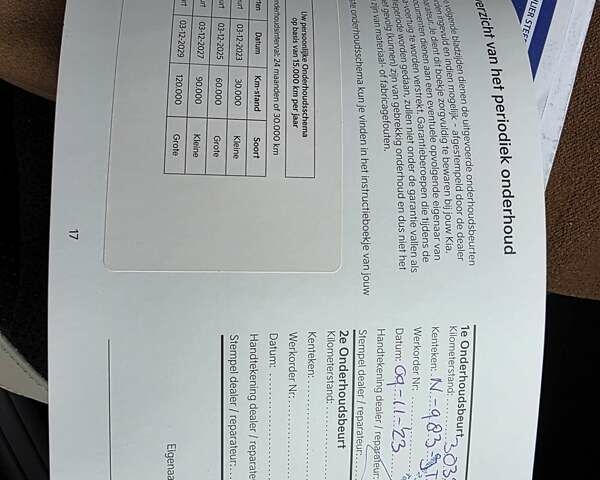 verzicht van het periodiek onderhoud
volgende bladzijden dienen de uitgevoerde onderhoudsbeurten
ingevuld en indien mogelijk – afgestempeld door de dealer
Je dient dit boekje zorgvuldig te bewaren bij jouw Kia.
dienen aan een eventuele opvolgende eigenaar van
voertuig te worden verstrekt. Garantieberoepen die tijdens de
worden gedaan, zullen niet onder de garantie vallen als
gevolg (kunnen) zijn van gebrekkig onderhoud en dus niet het
zijn van materiaal- of fabricagefouten.
onderhoudsschema kun je vinden in het instructieboekje van jouw
Uw persoonlijke Onderhoudsschema
op basis van 15.000 km per jaar
onderhoudsinterval: 24 maanden of 30.000 km
Datum Km-stand Soort
03-12-2023 30.000 Kleine
03-12-2025 60.000 Grote
03-12-2027 90.000 Kleine
03-12-2029 120.000 Grote
17
1e Onderhoudsbeurt
Kilometerstand:
Kenteken: N-983-
Werkorder Nr:
Datum: 09-11-'23
Handtekening dealer / reparateur:
Stempel dealer / reparateur:
2e Onderhoudsbeurt
Kilometerstand:
Kenteken:
Werkorder Nr:
Datum:
Handtekening dealer / reparateur
Stempel dealer / reparateur:
Eigenaa